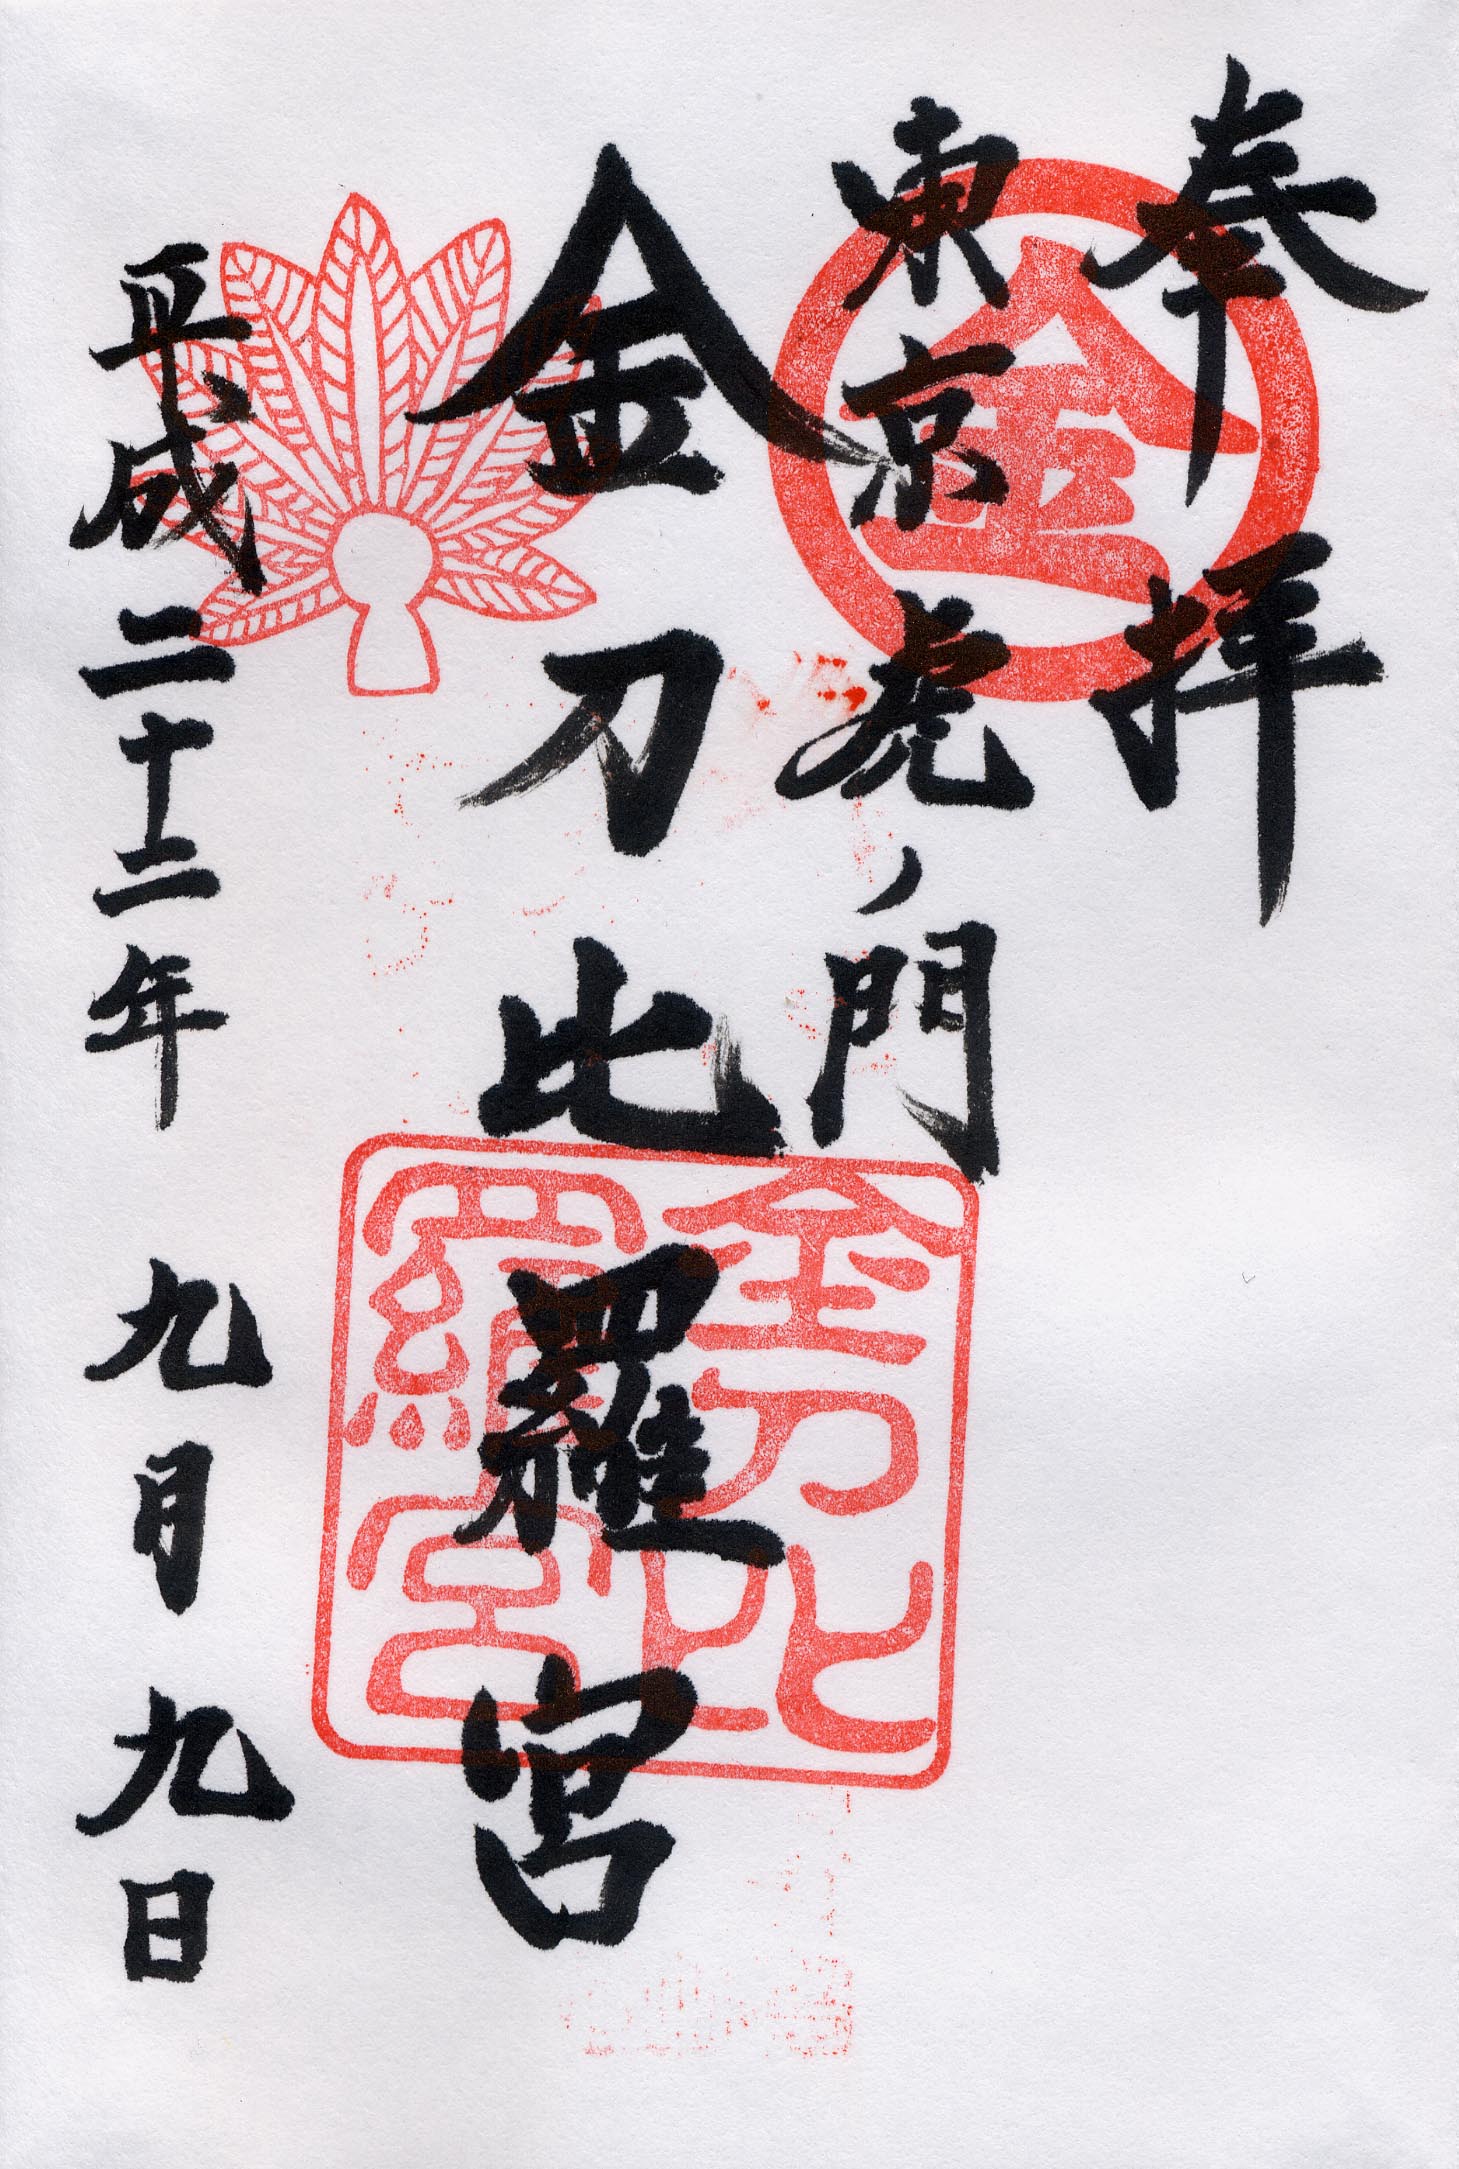 奉拝
東京虎ノ門
金
金刀比羅宮
金刀比
羅宮
平成二十二年 九月九日